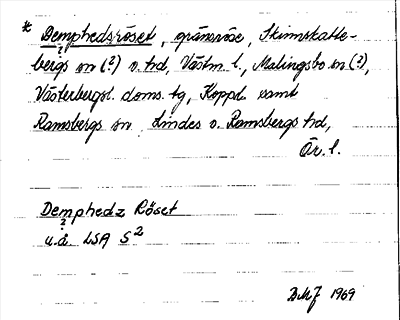 * Demphedsröset, gränsröse, Skinnskatte-
?
bergs sn (?) o. hd, Västm. l., Malingsbo sn (?),
Västerbergsl. doms. tg, Koppb. samt
Ramsbergs sn, Lindes o. Ramsbergs hd,
Ör. l.
Demphedz Röset
?
u.å. LSA S²
1969